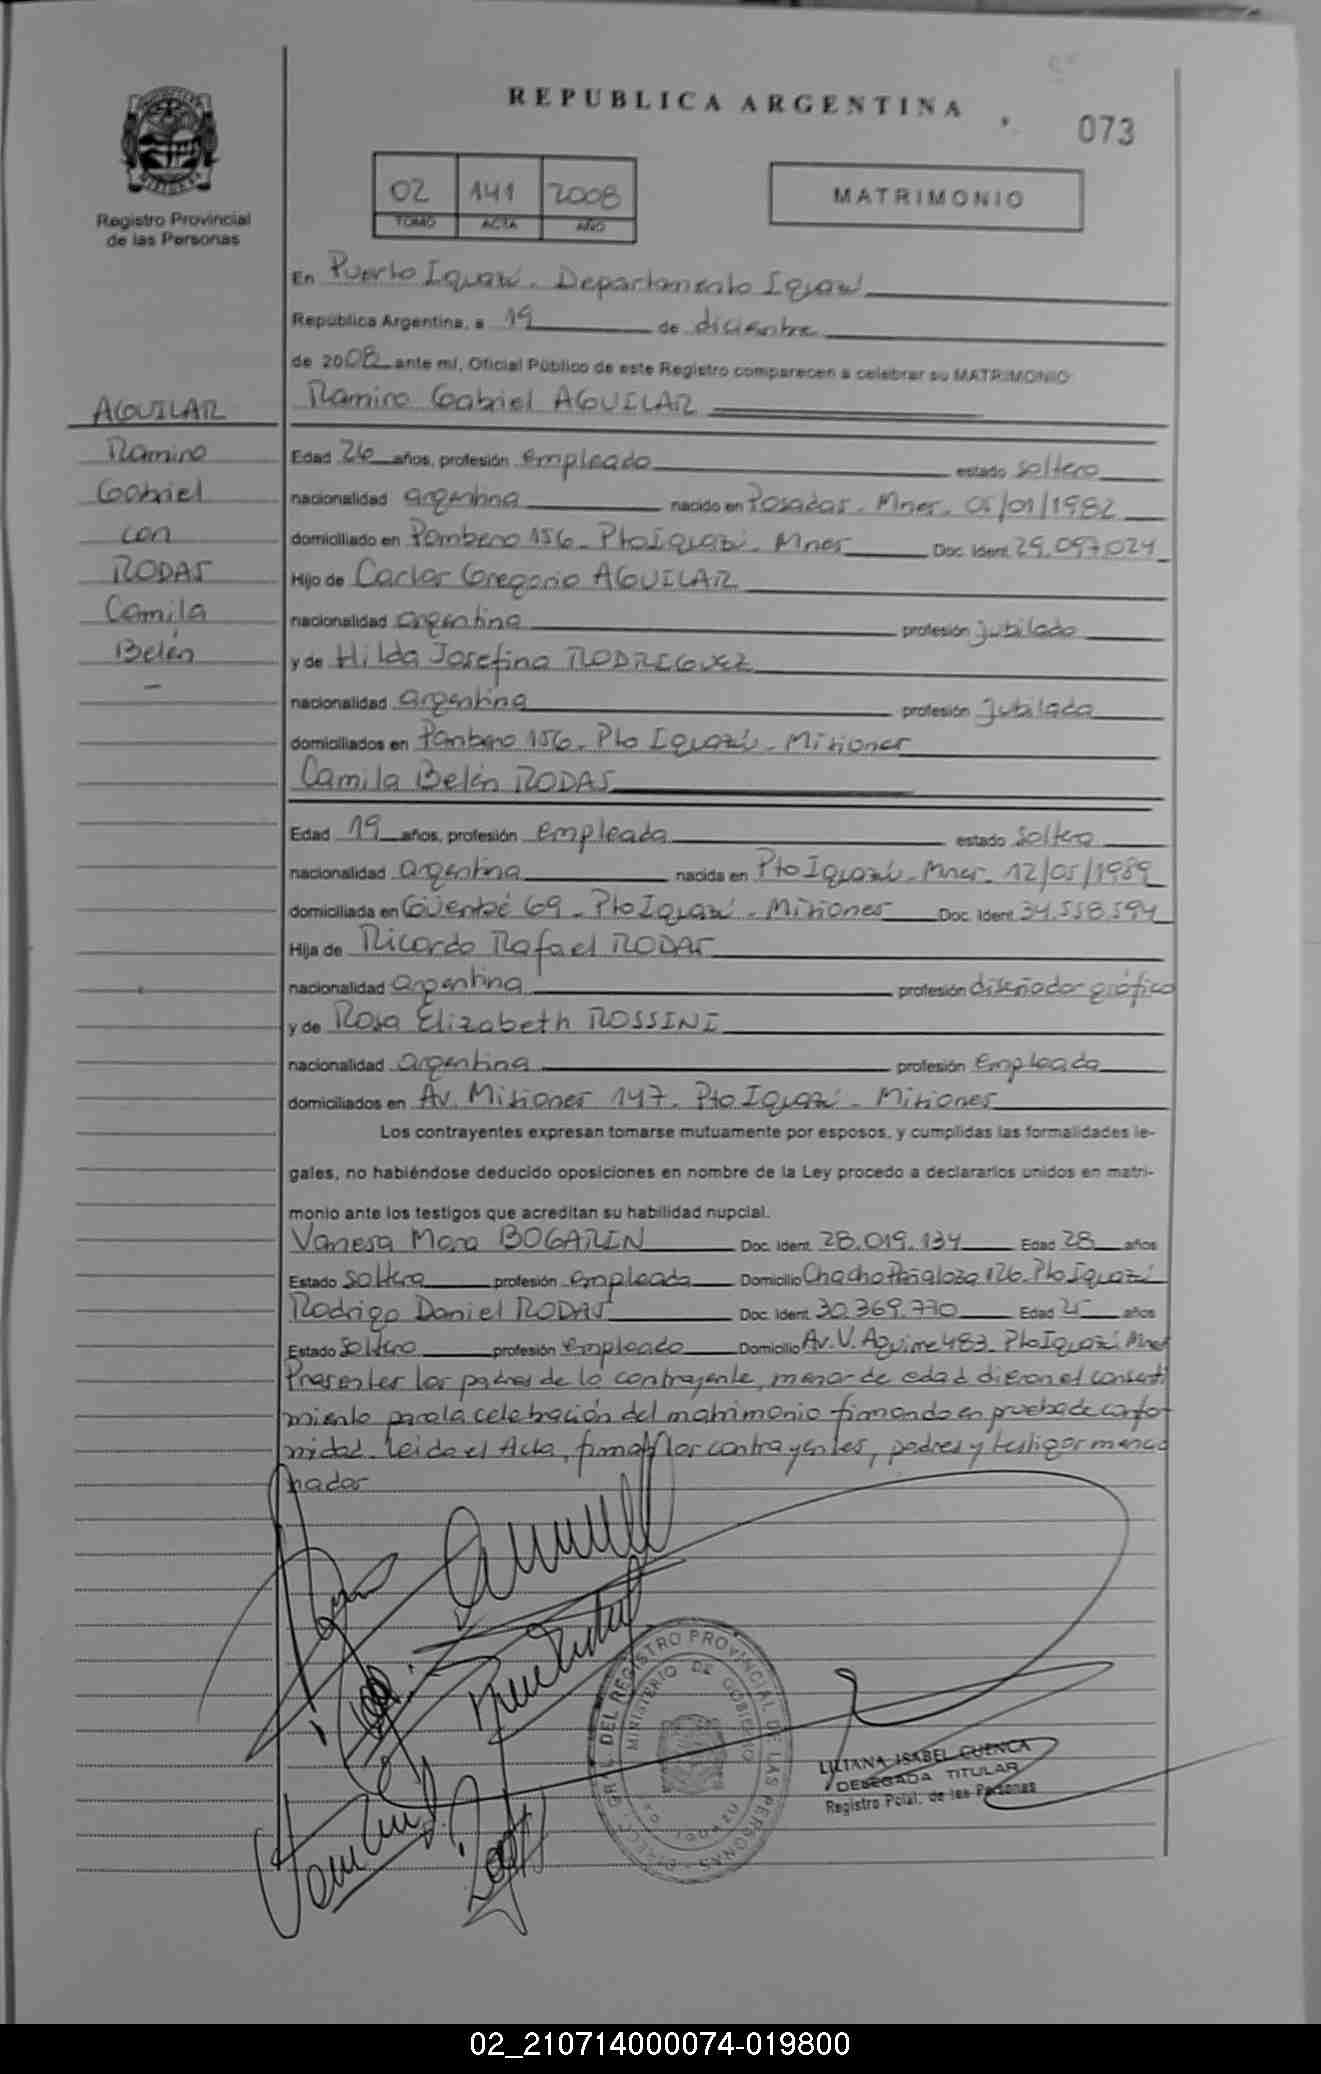 REPUBLICA ARGENTINA
073
Registro Provincial
de las Personas
02 141 2008
TOMO ACTA AÑO
MATRIMONIO
En Puerto Iguazú. Departamento Iguazú
República Argentina, a 19 de diciembre
de 2008 ante mí, Oficial Público de este Registro comparecen a celebrar su MATRIMONIO
Ramiro Gabriel AGUILAR
AGUILAR
Ramiro
Gabriel
con
RODAS
Camila
Belén
Edad 26 años, profesión empleado estado soltero
nacionalidad argentina nacido en Posadas. Mnes. 05/01/1982
domiciliado en Pombero 156. Pto Iguazú. Mnes Doc. Ident. 29.097.024
Hijo de Carlos Gregorio AGUILAR
nacionalidad argentina profesión jubilado
y de Hilda Josefina RODRIGUEZ
nacionalidad argentina profesión jubilada
domiciliados en Pombero 156. Pto Iguazú. Misiones
Camila Belén RODAS
Edad 19 años, profesión empleada estado soltera
nacionalidad argentina nacida en Pto Iguazú. Mnes. 12/05/1989
domiciliada en 69. Pto Iguazú. Misiones Doc. Ident. 34.558.594
Hija de Ricardo Rafael RODAS
nacionalidad argentina profesión diseñador gráfico
y de Rosa Elizabeth ROSSINI
nacionalidad argentina profesión empleada
domiciliados en Av. Misiones 147. Pto Iguazú. Misiones
Los contrayentes expresan tomarse mutuamente por esposos, y cumplidas las formalidades le-
gales, no habiéndose deducido oposiciones en nombre de la Ley procedo a declararlos unidos en matri-
monio ante los testigos que acreditan su habilidad nupcial.
Vanesa Mara BOGARIN Doc. Ident. 28.019.134 Edad 28 años
Estado soltera profesión empleada Domicilio Chacho Peñaloza 126. Pto Iguazú
Rodrigo Daniel RODAS Doc. Ident. 30.369.770 Edad 25 años
Estado soltero profesión empleado Domicilio Av. V. Aguirre 483. Pto Iguazú. Mnes
Presentes los padres de la contrayente, menor de edad dieron el consenti
miento para la celebración del matrimonio firmando en prueba de confor
midad. Leida el Acta, firman los contrayentes, padres y testigos mencio
nados
DIRECC. GRAL. DEL REGISTRO PROVINCIAL DE LAS PERSONAS
MINISTERIO DE GOBIERNO
LILIANA ISABEL CUENCA
DELEGADA TITULAR
Registro Pcial. de las Personas
02_210714000074-019800